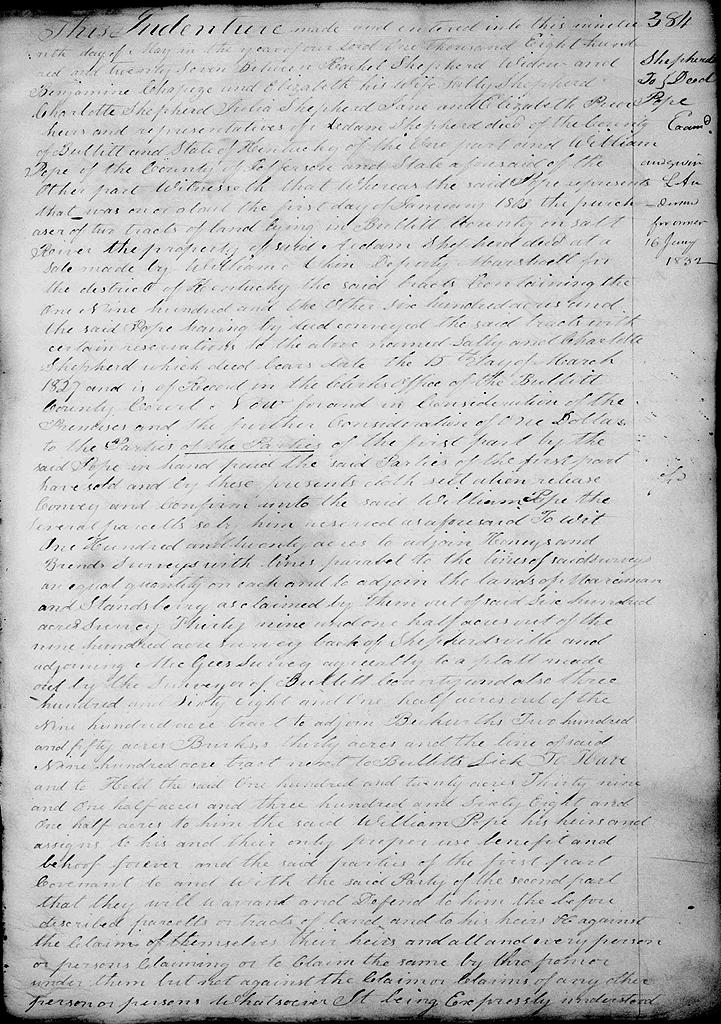 384
This Indenture made and entered into this ninetee
nth day of May in the year of our Lord One thousand Eight hund
red and twenty Seven Between Rachel Shepherd Widow and
Benjamine Chapeze and Elizabeth his Wife Sally Shepherd
Charlotte Shepherd Julia Shepherd Jane and Elizabeth
heirs and representatives of Adam Shepherd decd of the County
of Bullitt and State of Kentucky of the One part and William
Pope of the County of Jefferson and State aforesaid of the
Other part Witnesseth that Whereas the said Pope represents
that was on or about the first day of January the purch
aser of two tracts of land lying in Bullitt County on Salt
River the property of said Adam Shepherd decd at a
Sale made by William Chin Deputy Marshall for
the district of Kentucky the said tracts Containing the
One Nine hundred and the Other Six hundred acres and
the said Pope having by deed conveyed the said tracts with
certain reservations to the above named Sally and Charlotte
Shepherd which deed bears date the 15th day of March
1827 and is of Record in the Clerks Office of the Bullitt
County Court. Now for and in Consideration of the
Premises and the further Consideration of One Dollar
to the Parties of the Parties of the first part by the
said Pope in hand paid the said Parties of the first part
have sold and by these presents doth sell alien release
Convey and Confirm unto the said William Pope the
Several parcells so by him reserved as aforesaid To Wit
One Hundred and twenty acres to adjoin Honeys and
Surveys with lines paralel to the lines of said surveys
an equal quantity on each and to adjoin the lands of
and Standsbery as claimed by them out of said Six hundred
acre Survey Thirty nine and one half acres out of the
nine hundred acre survey back of Shepherdsville and
adjoining McGees Survey agreeably to a platt made
out by the Surveyor of Bullitt County and also three
hundred and Sixty Eight and One half acres out of the
Nine hundred acre tract to adjoin Beckwiths Two hundred
and fifty acres Burks thirty acres and the line of said
Nine hundred acre tract next to Bullitts Lick To Have
and to Hold the said One hundred and twenty acres Thirty nine
and One half acres and three hundred and Sixty Eight and
One half acres to him the said William Pope his heirs and
assigns to his and their only proper use benefit and
behoof forever and the said parties of the first part
Covenant to and with the said Party of the second part
that they will warrant and Defend to him the before
described parcells or tracts of land and to his heirs &c against
the Claim of themselves their heirs and all and every person
or persons Claiming or to Claim the same by thro from or
under them but not against the Claim or Claims of any other
person or persons Whatsoever It being Expressly understood
Shepherds
To } Deed
Pope
Examd
and given
for owner
16 Jany
1832